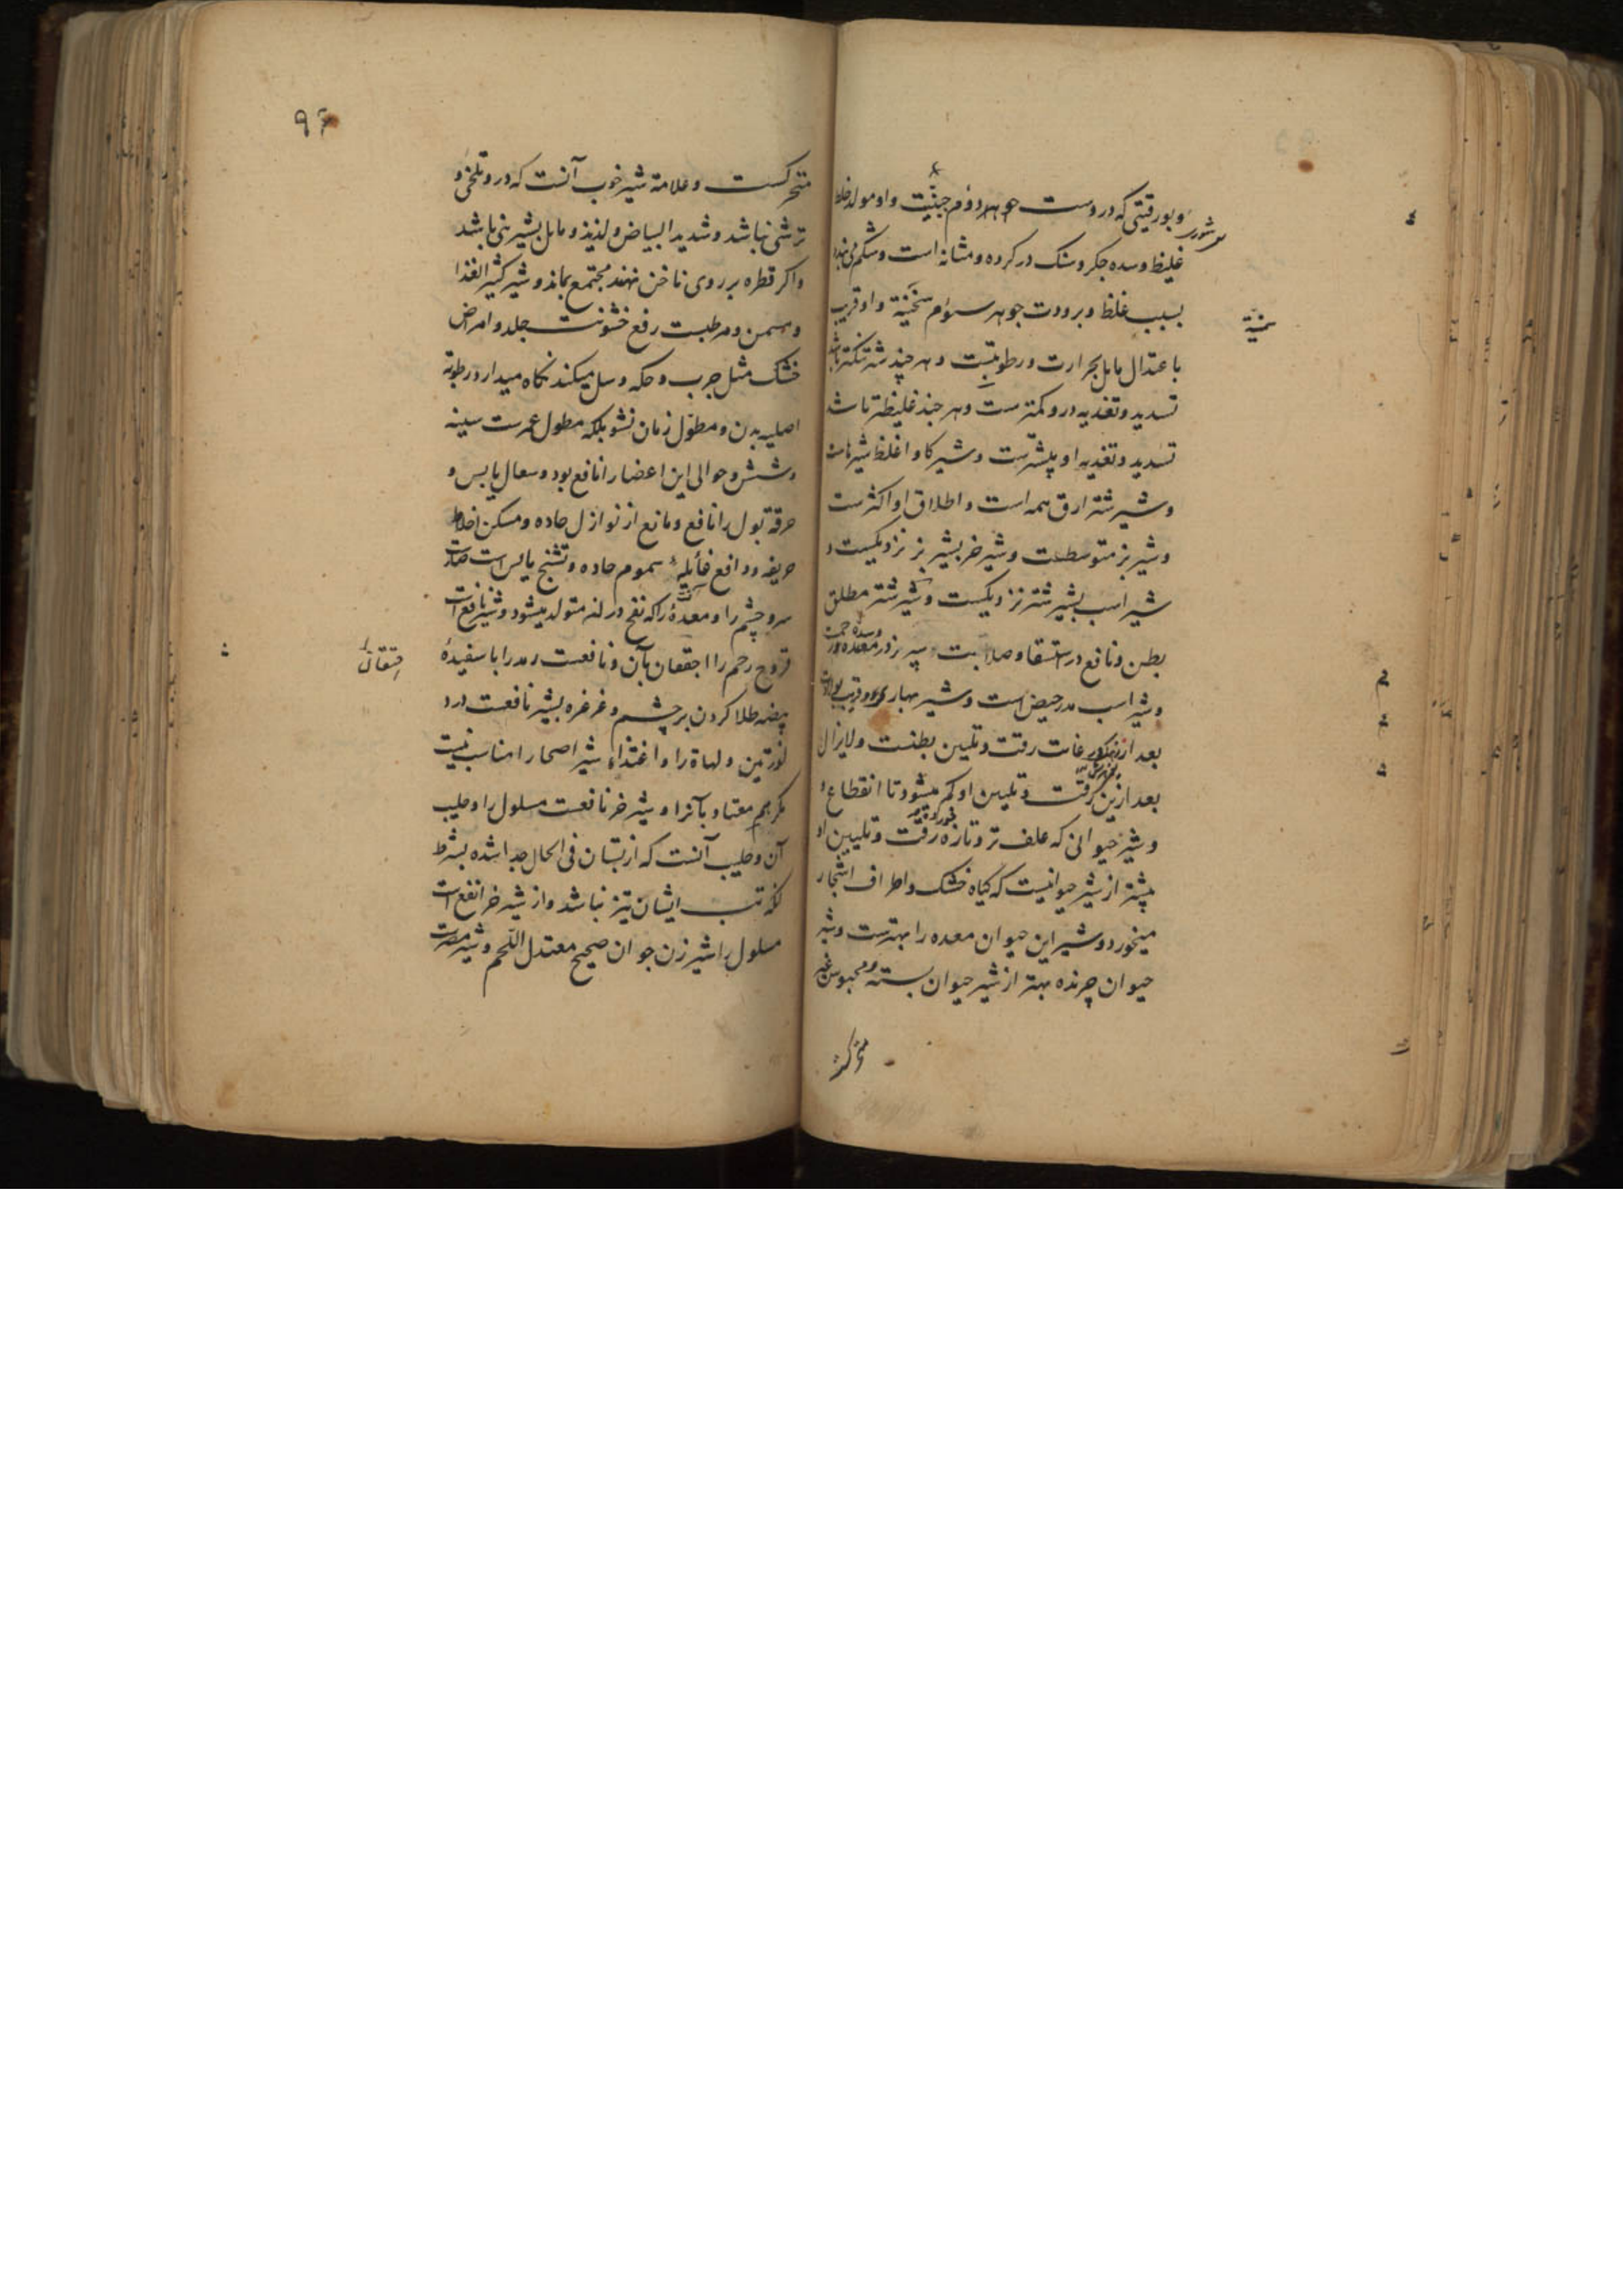 و بورقیتی که دروست جوهر دوم جبنیت و او مولد خلط
شوری
غلیظ و سده جکر و سنک در کرده و مثانه است و شکم می بندد
بسبب غلظ و برودت جوهر سوم سخنیة و او قریب
سمنیة
باعتدال مایل بحرارت و رطوبتست و هر چند شیر تنکتر باشد
تسدید و تغدیه درو کمترست و هر چند غلیظتر باشد
تسدید و تغدیه او بیشترست و شیر کاو اغلظ شیرهاست
و شیر شتر ارق همه است و اطلاق او اکثرست
و شیر بز متوسطست و شیر خر بشیر بز نزدیکست و
شیر اسب بشیر شتر نزدیکست و شیر شتر مطلق
بطن و نافع در استسقا و صلابت سپرز در معده و
و شیر اسب مدر حیض است و شیر بهاری و قریب بولادت
بعد از غایت رقت و تلیین بطنست و لایزال
بعد ازین رقت و تلیین او کم میشود تا انقطاع و
و شیر حیوانی که علف تر و تازه رقت و تلیین او
بیشتر از شیر حیوانیست که کیاه خشک و اطراف اشجار
میخورد و شیر این حیوان معده را بهترست و شیر
حیوان چرنده بهتر از شیر حیوان بسته و محبوس غیر
متحرکست
٩٦
متحرکست و علامة شیر خوب آنست که درو تلخی و
ترشی نباشد و شدید البیاض و لذیذ و مایل بشیرینی باشد
و اکر قطره بر روی ناخن نهند مجتمع بماند و شیر کثیر الغذا
و مسمن و مرطبست رفع خشونت جلد و امراض
خشک مثل جرب و حکه و سل میکند نکاه میدارد رطوبة
اصلیه بدن و مطول زمان نشو بلکه مطول عمرست سینه
و شش و حوالی این اعضا را نافع بود و سعال یابس و
حرقة بول را نافع و مانع از نوازل حاده و مسکن اخلاط
حریفه و دافع غائلۀ سموم حاده و تشنج یابس است
سر و چشم را و معدۀ را که نفخ در متولد میشود و شیر نافع است
قروح رحم را احتقان بآن و نافعست رمد را با سفیدۀ
احتقان
بیضه طلا کردن بر چشم و غرغره بشیر نافعست درد
لوزتین و لهاة را و اغتذا بشیر اصحا را مناسب نیست
مکر هم معتاد بآنرا و شیر خر نافعست مسلول را و حلیب
آن و حلیب آنست که از پستان فی الحال جدا شده بشرط
آنکه تب ایشان تیز نباشد و از شیر خر انفع است
مسلول را شیر زن جوان صحیح معتدل اللحم و شیر مضرست